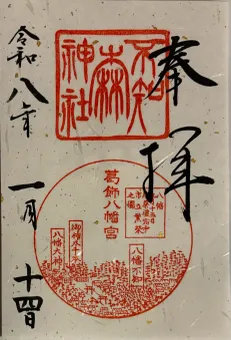 奉拝
不知森神社
葛飾八幡宮
八幡不知
御神木千本
八幡大神
令和八年
一月
十四日